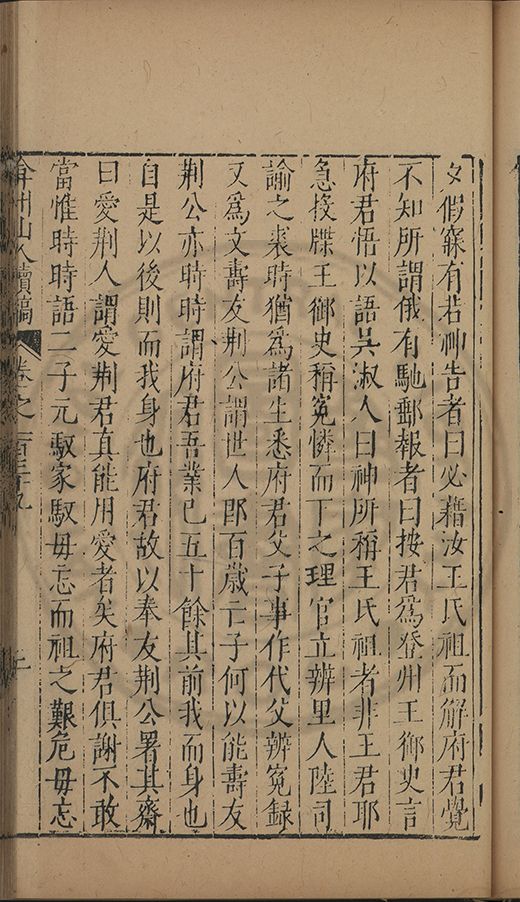 夕假寐有若神告者曰必藉汝王氏祖而解府君覺
不知所謂俄有馳郵報者曰按君爲登州王御史言
府君悟以語吳淑人曰神所稱王氏祖者非王君耶
急投牒王御史稱冤憐而下之理官立辨里人陸司
諭之裘時猶爲諸生悉府君父子事作代父辨冤録
又爲文壽友荆公謂世人卽百歲亡子何以能壽友
荆公亦時時謂府君吾業已五十餘其前我而身也
自是以後則而我身也府君故以奉友荆公署其齋
曰愛荆人謂愛荆君真能用愛者矣府君俱謝不敢
當惟時時語二子元馭家馭毋忘而祖之艱危毋忘
弇州山人續稿
卷之一百三十九